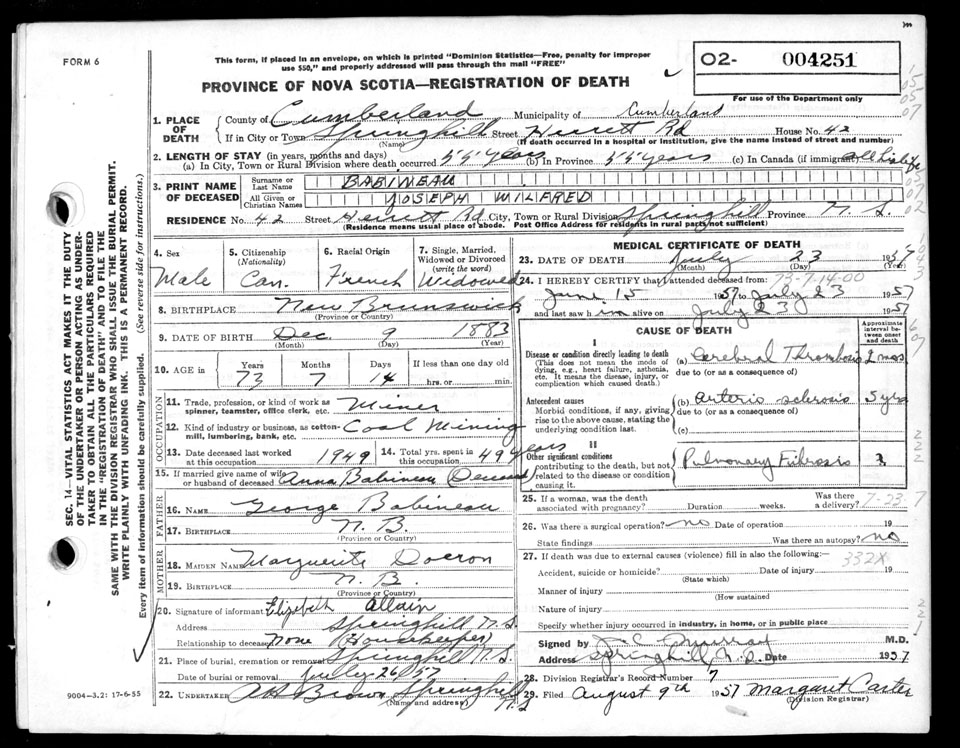 FORM 6
This form, if placed in an envelope, on which is printed "Dominion Statistics—Free, penalty for improper
use $50," and properly addressed will pass through the mail "FREE"
PROVINCE OF NOVA SCOTIA—REGISTRATION OF DEATH
02- 004251
For use of the Department only
1. PLACE OF DEATH County of Cumberland Municipality of Cumberland
If in City or Town Springhill (Name) Street Herrett Rd House No. 42
(If death occurred in a hospital or institution, give the name instead of street and number)
2. LENGTH OF STAY (in years, months and days)
(a) In City, Town or Rural Division where death occurred 55 years (b) In Province 55 years (c) In Canada (if immigrant) all his life
3. PRINT NAME OF DECEASED Surname or Last Name BABINEAU
All Given or Christian Names JOSEPH WILFRED
RESIDENCE No. 42 Street Herrett Rd City, Town or Rural Division Springhill Province N. S.
(Residence means usual place of abode. Post Office Address for residents in rural parts not sufficient)
4. Sex Male
5. Citizenship (Nationality) Can.
6. Racial Origin French
7. Single, Married, Widowed or Divorced (write the word) Widowed
8. BIRTHPLACE New Brunswick
(Province or Country)
9. DATE OF BIRTH Dec. 9 1883
(Month) (Day) (Year)
10. AGE in Years 73 Months 7 Days 14 If less than one day old hrs. or min.
OCCUPATION
11. Trade, profession, or kind of work as spinner, teamster, office clerk, etc. Miner
12. Kind of industry or business, as cotton-mill, lumbering, bank, etc. Coal Mining
13. Date deceased last worked at this occupation 1949 14. Total yrs. spent in this occupation 49 years
15. If married give name of wife or husband of deceased Anna Babineau (Deceased)
FATHER
16. Name George Babineau
17. Birthplace N. B.
(Province or Country)
MOTHER
18. Maiden Name Marguerite Doeron
19. Birthplace N. B.
(Province or Country)
20. Signature of informant Elizabeth Allain
Address Springhill N. S.
Relationship to deceased None (Housekeeper)
21. Place of burial, cremation or removal Springhill N. S.
Date of burial or removal July 26/57
22. UNDERTAKER A H Brown Springhill N. S
(Name and address)
9004-3.2: 17-6-55
MEDICAL CERTIFICATE OF DEATH
23. DATE OF DEATH July 23 1957
(Month) (Day) (Year)
73-7-14-00
24. I HEREBY CERTIFY that I attended deceased from:
June 15 1957 to July 23 1957
and last saw him alive on July 23 1957
CAUSE OF DEATH
Approximate interval between onset and death
I
Disease or condition directly leading to death
(This does not mean the mode of dying, e.g., heart failure, asthenia, etc. It means the disease, injury, or complication which caused death.)
(a) Cerebral Thrombosis 2 mos
due to (or as a consequence of)
Antecedent causes
Morbid conditions, if any, giving rise to the above cause, stating the underlying condition last.
(b) arterio sclerosis 5 yrs
due to (or as a consequence of)
(c)
II
Other significant conditions
contributing to the death, but not related to the disease or condition causing it.
Pulmonary Fibrosis ?
25. If a woman, was the death associated with pregnancy? Duration weeks. Was there a delivery?
7-23-7
26. Was there a surgical operation? no Date of operation 19
State findings Was there an autopsy? no
27. If death was due to external causes (violence) fill in also the following:—
332X
Accident, suicide or homicide? Date of injury 19
(State which)
Manner of injury
(How sustained
Nature of injury
Specify whether injury occurred in industry, in home, or in public place
Signed by J. C. Murray M.D.
Address Springhill N. S. Date 1957
28. Division Registrar's Record Number 7
29. Filed August 9th 1957 Margaret Carter
(Division Registrar)
SEC. 14—VITAL STATISTICS ACT MAKES IT THE DUTY
OF THE UNDERTAKER OR PERSON ACTING AS UNDER-
TAKER TO OBTAIN ALL THE PARTICULARS REQUIRED
IN THE "REGISTRATION OF DEATH" AND TO FILE THE
SAME WITH THE DIVISION REGISTRAR WHO SHALL ISSUE THE BURIAL PERMIT.
WRITE PLAINLY WITH UNFADING INK. THIS IS A PERMANENT RECORD.
Every item of information should be carefully supplied. (See reverse side for instructions.)